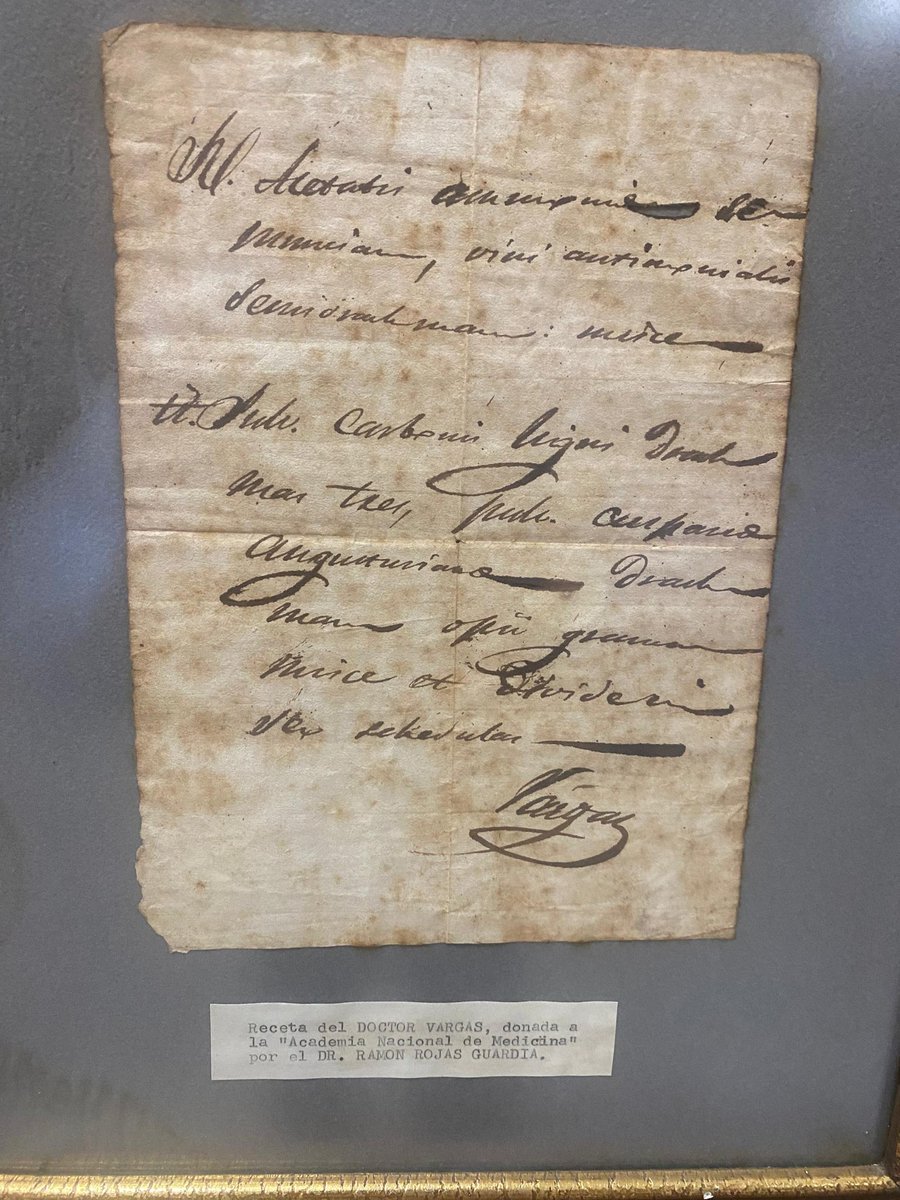 R. Acetatis ammoniae se
munciam, vini antimonialis
semidrachmam: misce
R. Pulv. carbonis ligni drach
mas tres, pulv. cuspariae
angusturianae drach
mam opii granum
misce et divide in
sex schedulas
Vargas
Receta del DOCTOR VARGAS, donada a
la "Academia Nacional de Medicina"
por el DR. RAMON ROJAS GUARDIA.